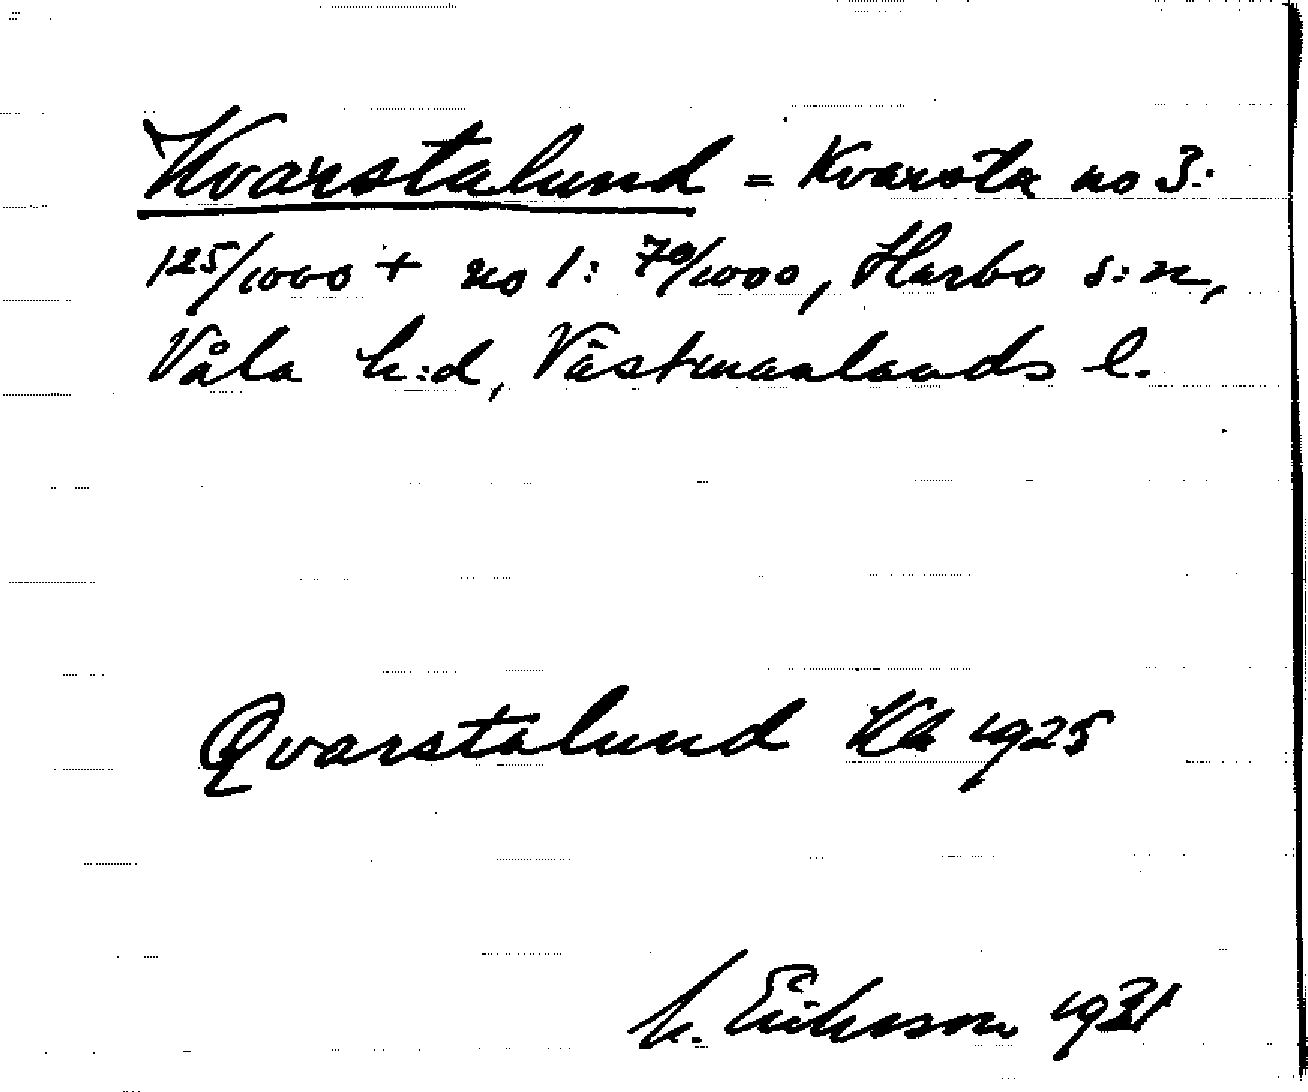 Kvarstalund = Kvarsta no 3:
125/1000 + no 1: 70/1000, Harbo s:n,
Våla h:d, Västmanlands l.
Qvarstalund Kb 1925
Eriksson 1931